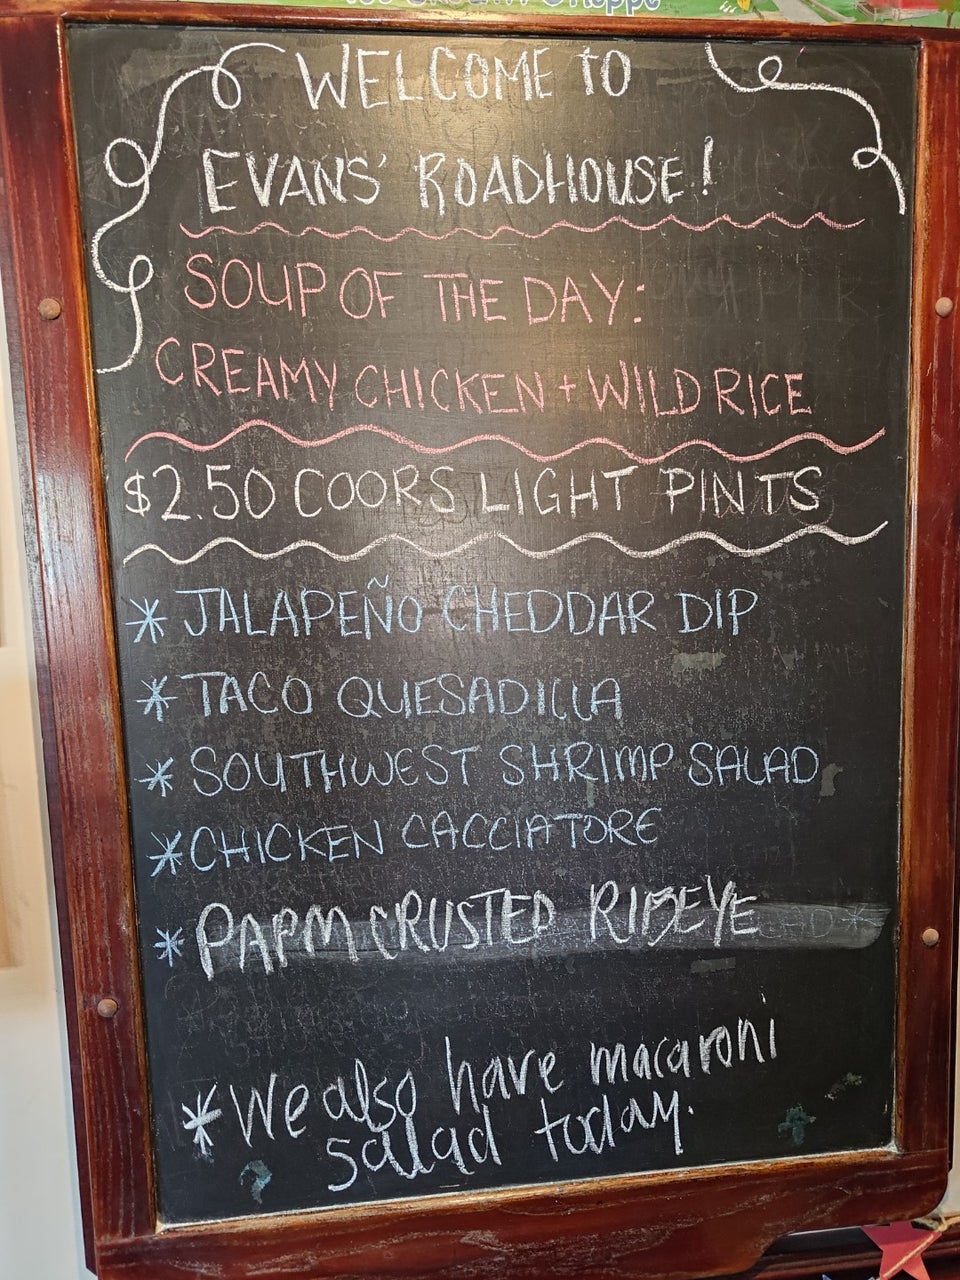 WELCOME TO
EVANS' ROADHOUSE!
SOUP OF THE DAY:
CREAMY CHICKEN + WILD RICE
$2.50 COORS LIGHT PINTS
* JALAPEÑO CHEDDAR DIP
* TACO QUESADILLA
* SOUTHWEST SHRIMP SALAD
* CHICKEN CACCIATORE
* PARM CRUSTED RIBEYE
* We also have macaroni
salad today.